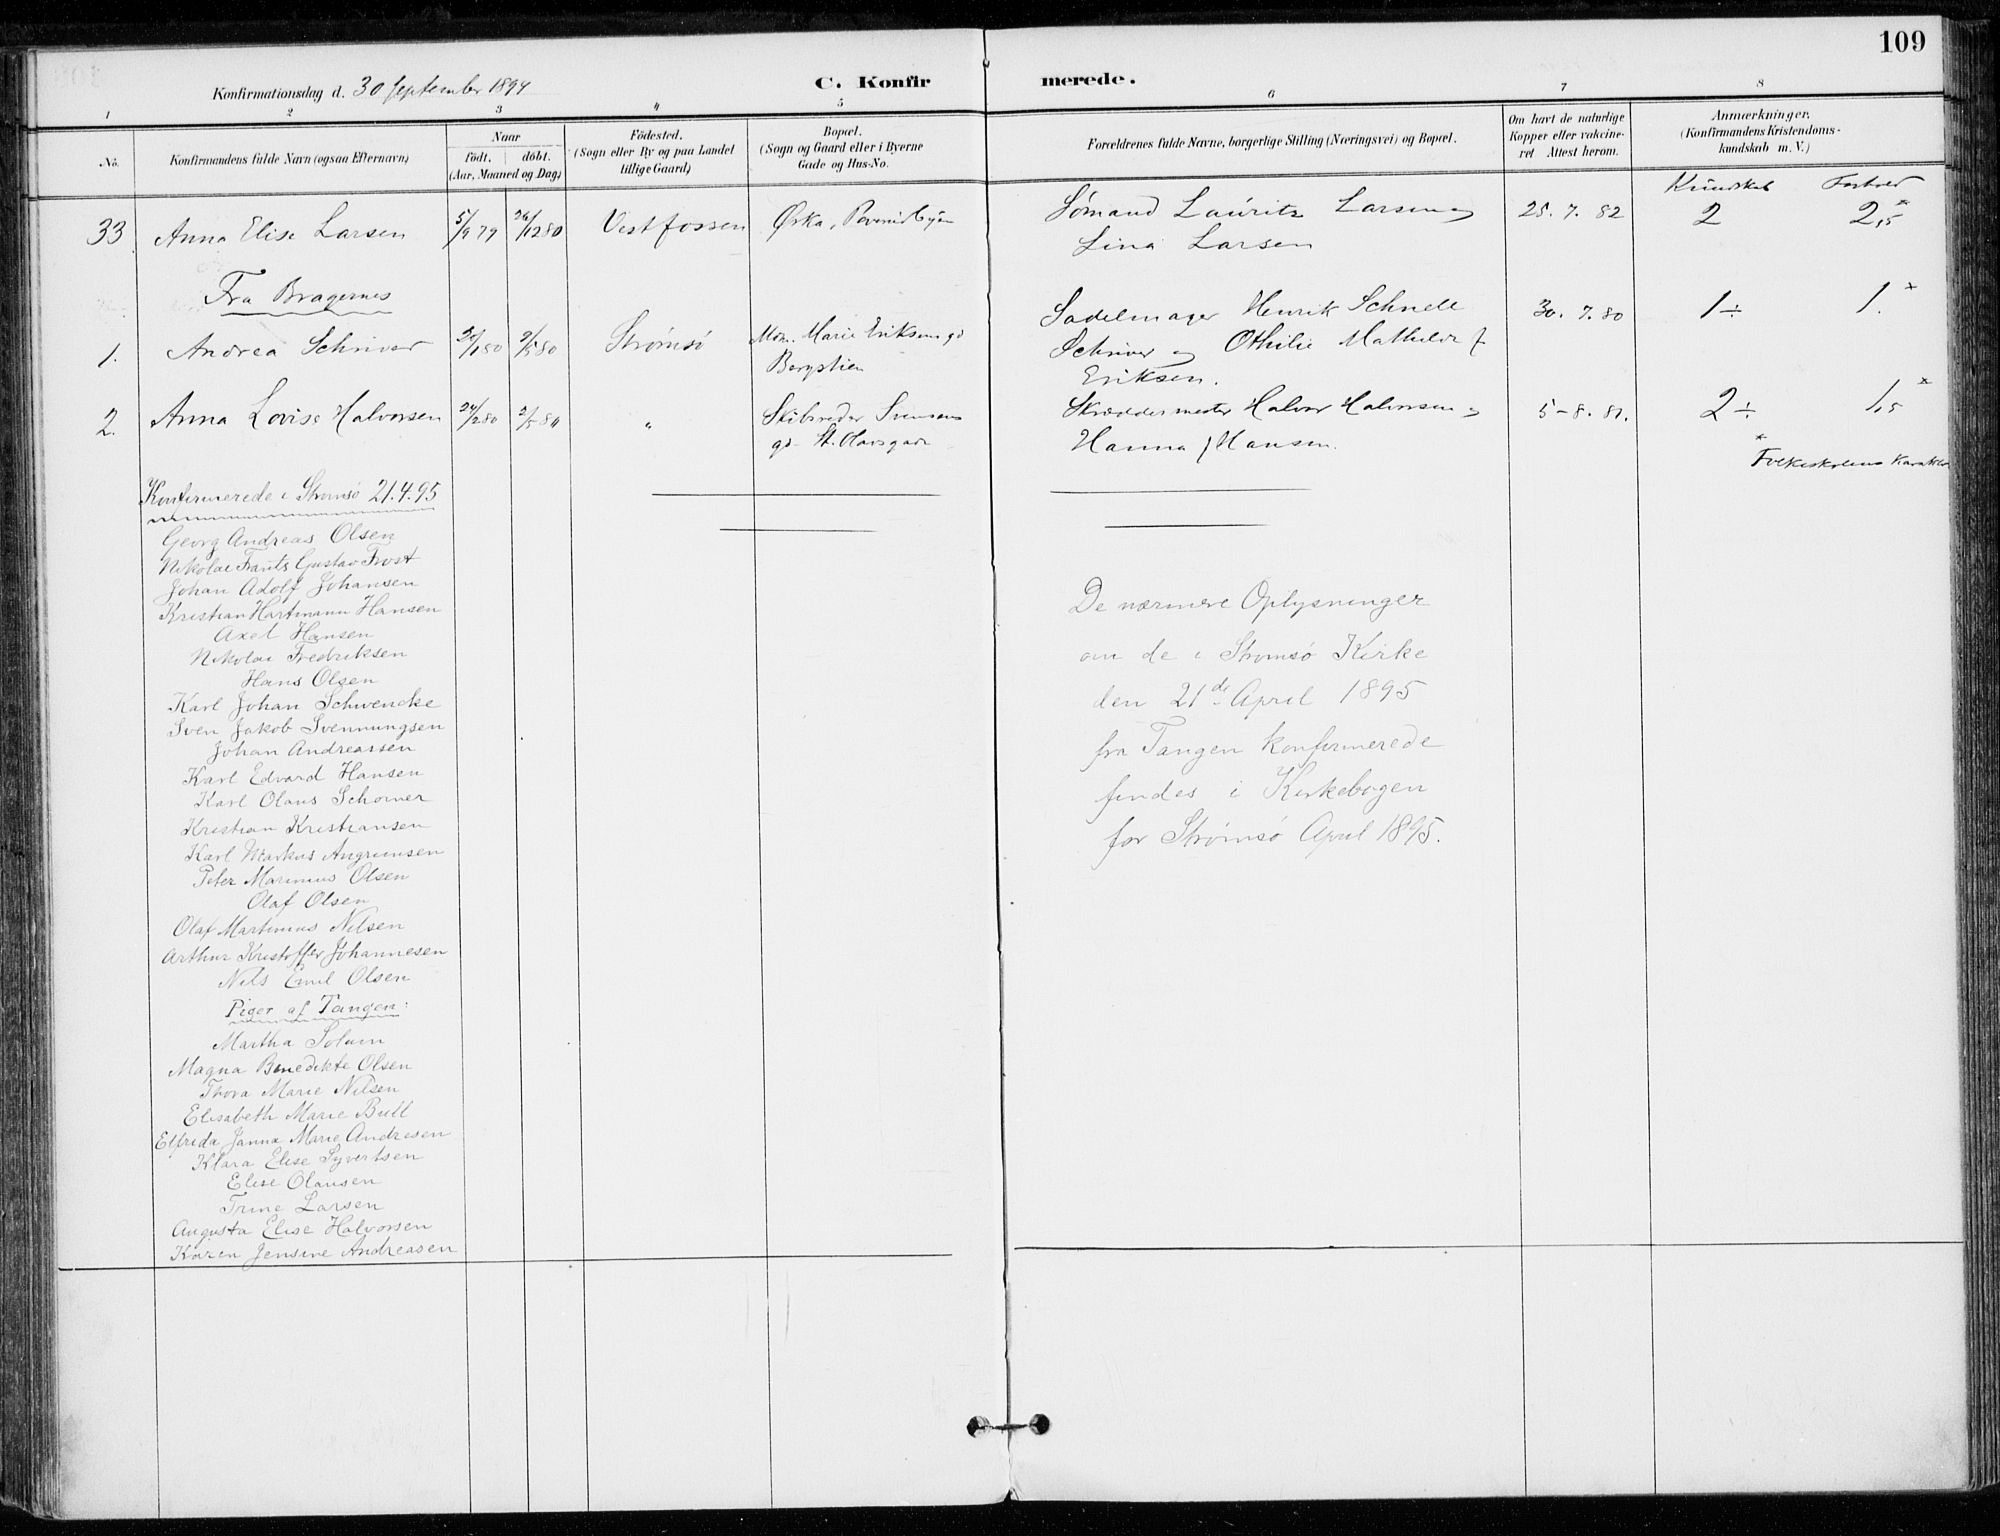 109
Konfirmationsdag d. 30 September 1894
C. Konfirmerede.
1 2 3 4 5 6 7 8
No.
Konfirmandens fulde Navn (ogsaa Efternavn)
Naar
født. døbt.
(Aar, Maaned og Dag)
Fødested.
(Sogn eller By og paa Landet
tillige Gaard)
Bopæl.
(Sogn og Gaard eller i Byerne
Gade og Hus-No.
Forældrenes fulde Navne, borgerlige Stilling (Næringsvei) og Bopæl.
Om havt de naturlige
Kopper eller vakcine-
ret Attest herom.
Anmærkninger,
(Konfirmandens Kristendoms-
kundskab m. V.)
Kundskab Forhold
33 Anna Elise Larsen 5/9 79 26/12 80 Vestfossen Ørka,
Sømand Lauritz Larsen og
Lina Larsen
25. 7. 82 2 2,5*
Fra Bragernes
1. Andrea Schriver /1 80 9/5 80 Strømsø Mdm. Marie Eriksens gd
Bergstien
Sadelmager Henrik Schnell
Schriver og Othilie Mathilde f
Eriksen.
30. 7. 80 1÷ 1.*
2. Anna Lovise Halvorsen 24/2 80 2/5 80 "
Skibsreder Svensens
gd. St. Olavsgade
Skræddermester Halvor Halvorsen og
Hanna f Hansen.
5-8. 81. 2÷ 1,5*
* Folkeskolens Karakter
Konfirmerede i Strømsø 21.4.95
Georg Andreas Olsen
Nikolai Frants Gustav Frost
Johan Adolf Johansen
Kristian Hartmann Hansen
Axel Hansen
Nikolai Fredriksen
Hans Olsen
Karl Johan Schwencke
Sven Jakob Svennungsen
Johan Andreassen
Karl Edvard Hansen
Karl Olaus Schomer
Kristian Kristiansen
Karl Markus Angrimsen
Peter Marinius Olsen
Olaf Olsen
Olaf Martinius Nilsen
Arthur Kristoffer Johannesen
Nils Emil Olsen
Piger af Tangen:
Martha Solum
Magna Benedikte Olsen
Thora Marie Nilsen
Elisabeth Marie Bull
Elfrida Janna Marie Andresen
Klara Elise Syvertsen
Elise Olausen
Trine Larsen
Augusta Elise Halvorsen
Karen Jensine Andreasen
De nærmere Oplysninger
om de i Strømsø Kirke
den 21de April 1895
fra Tangen konfirmerede
findes i Kirkebogen
for Strømsø April 1895.